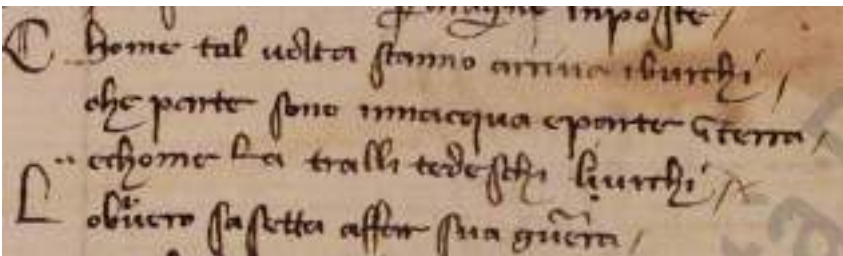 inposte /
C home tal uolta stanno arriua iburchi /
che parte sono innacqua eparte īterra /
echome La tralli tedeschi liurchi /
L obiuero sasetta affar sua guēra /